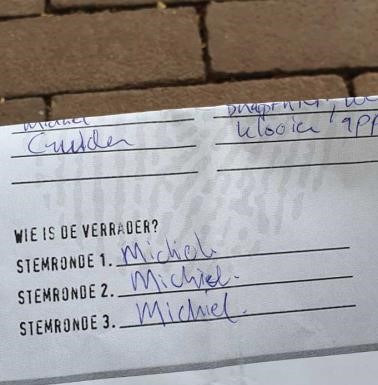 Michel
Klooier, app
WIE IS DE VERRADER?
STEMRONDE 1. Michiel
STEMRONDE 2. Michiel.
STEMRONDE 3. Michiel.